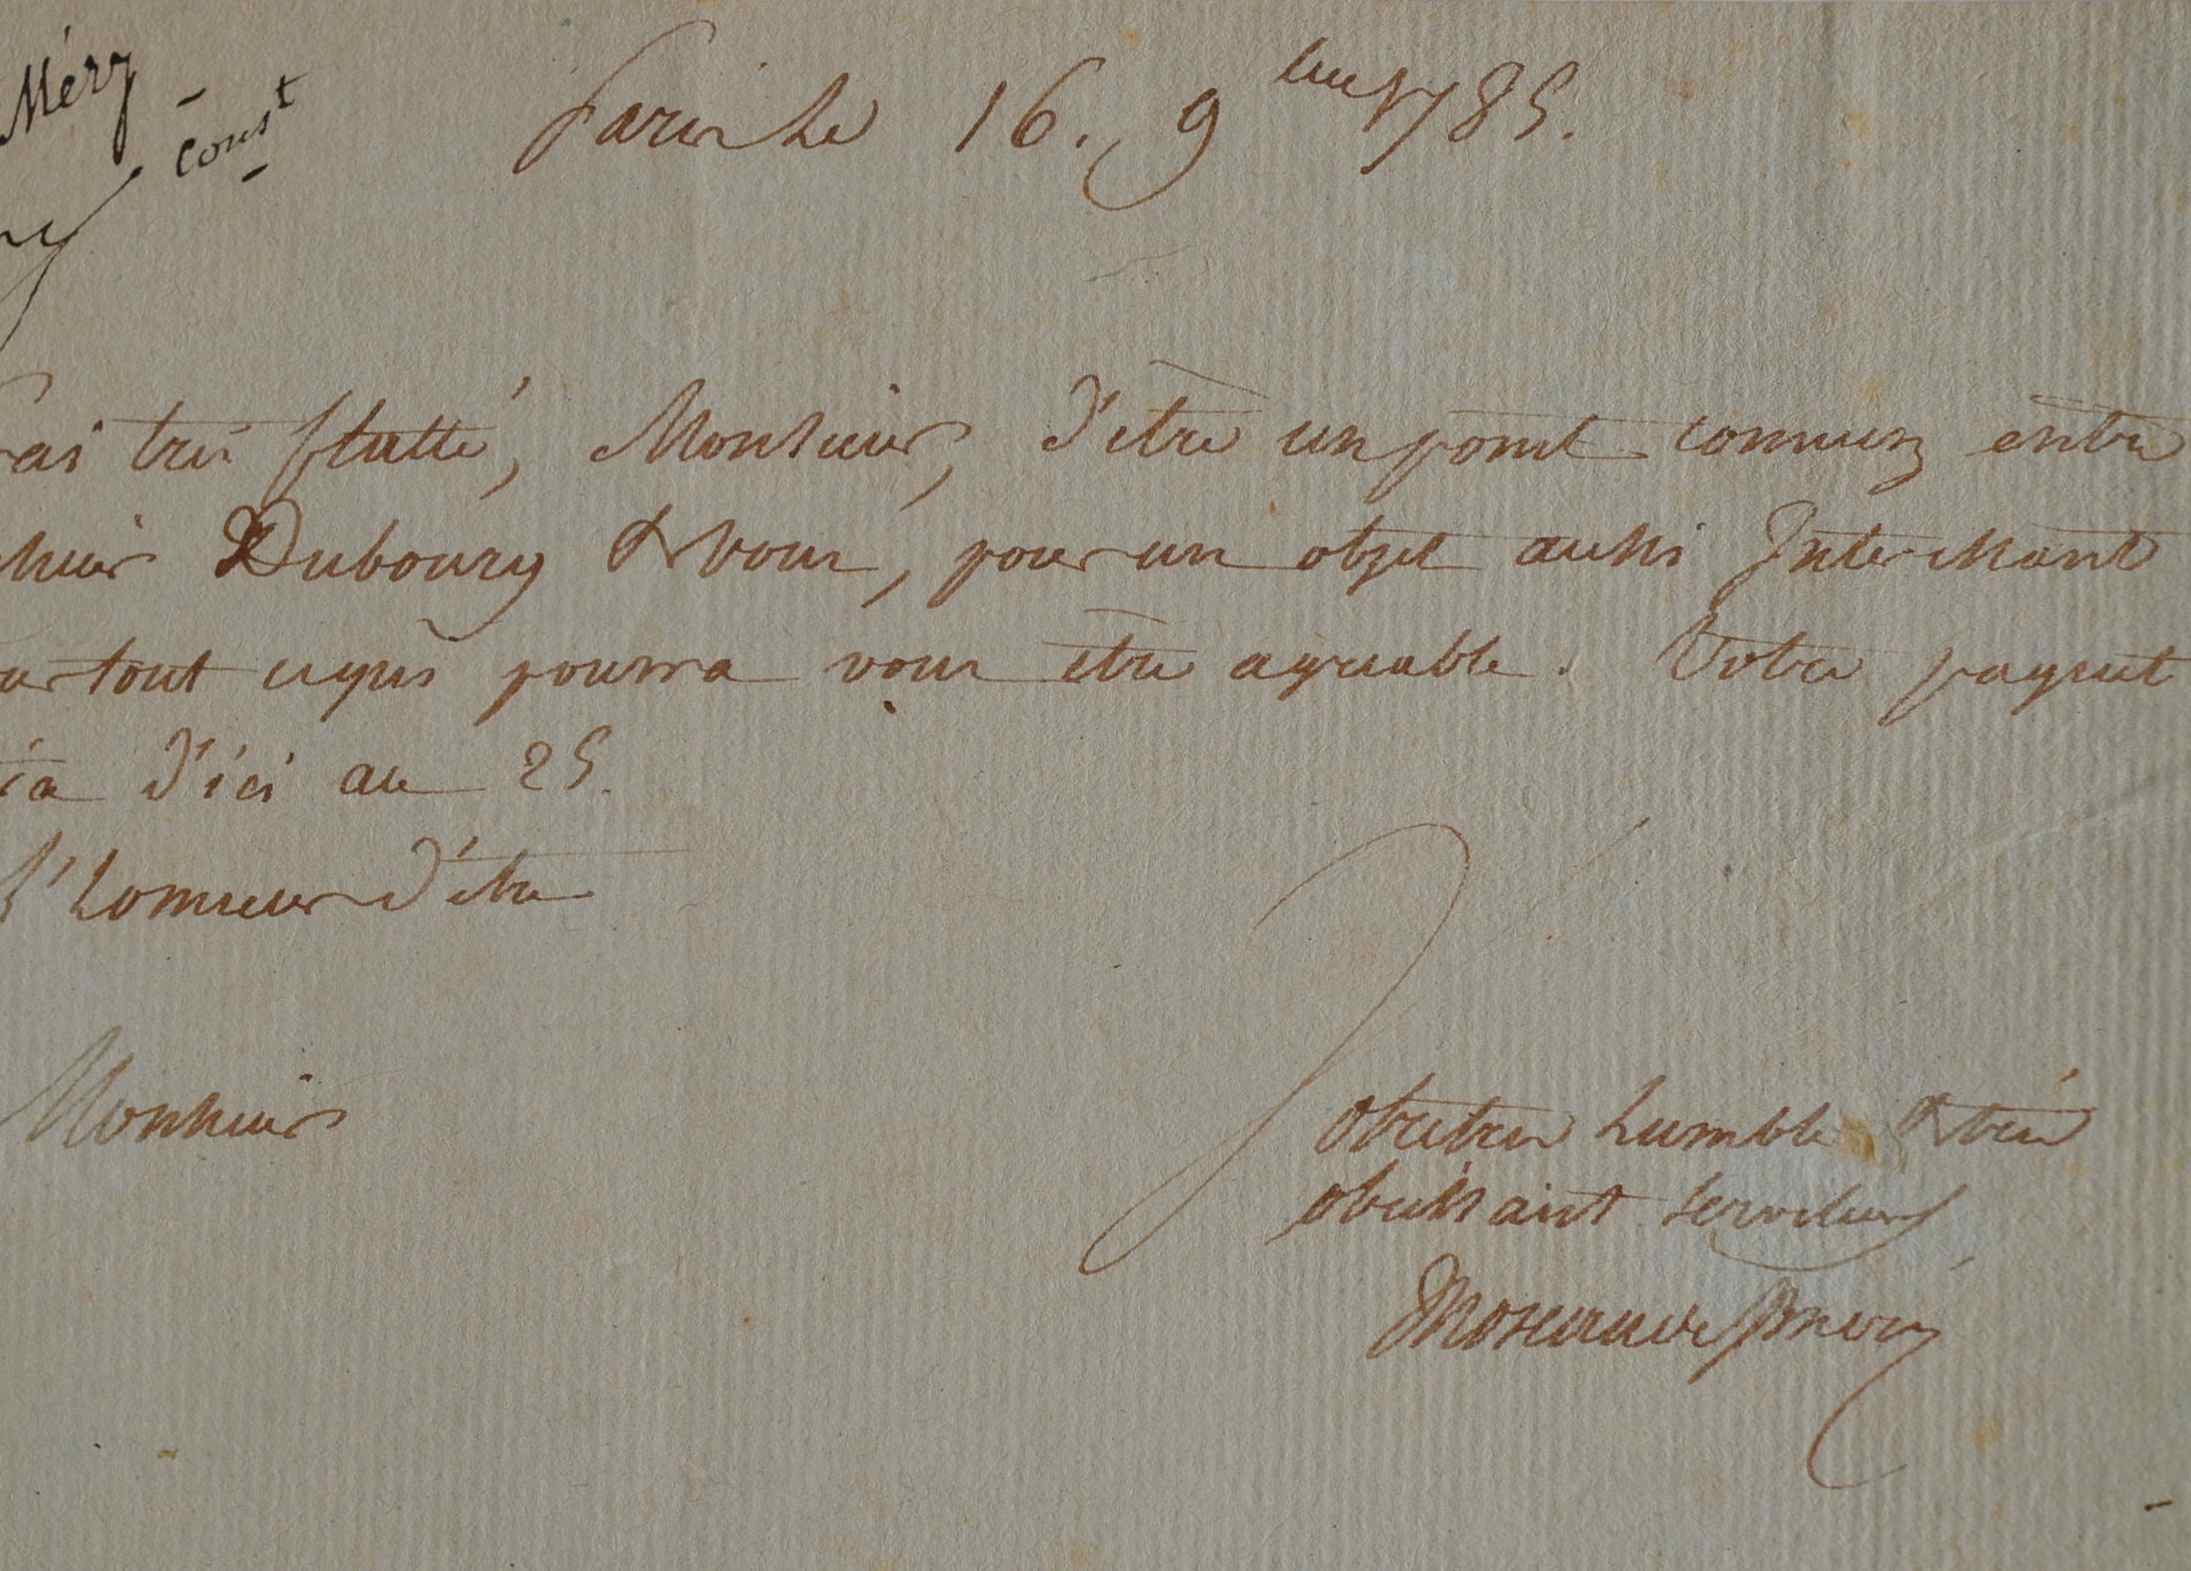 Méry
Const
Paris Le 16. 9bre 1785.
rai très flatté, Monsieur, d'être un point commun entre
sieur Dubourg & vous, pour un objet aussi Interessant
tout cequi pourra vous être agreable. Votre paquet
d'ici au 25.
l'honneur d'être
Monsieur
Votre tres humble & tres
obeissant serviteur
Moreau de St Mery